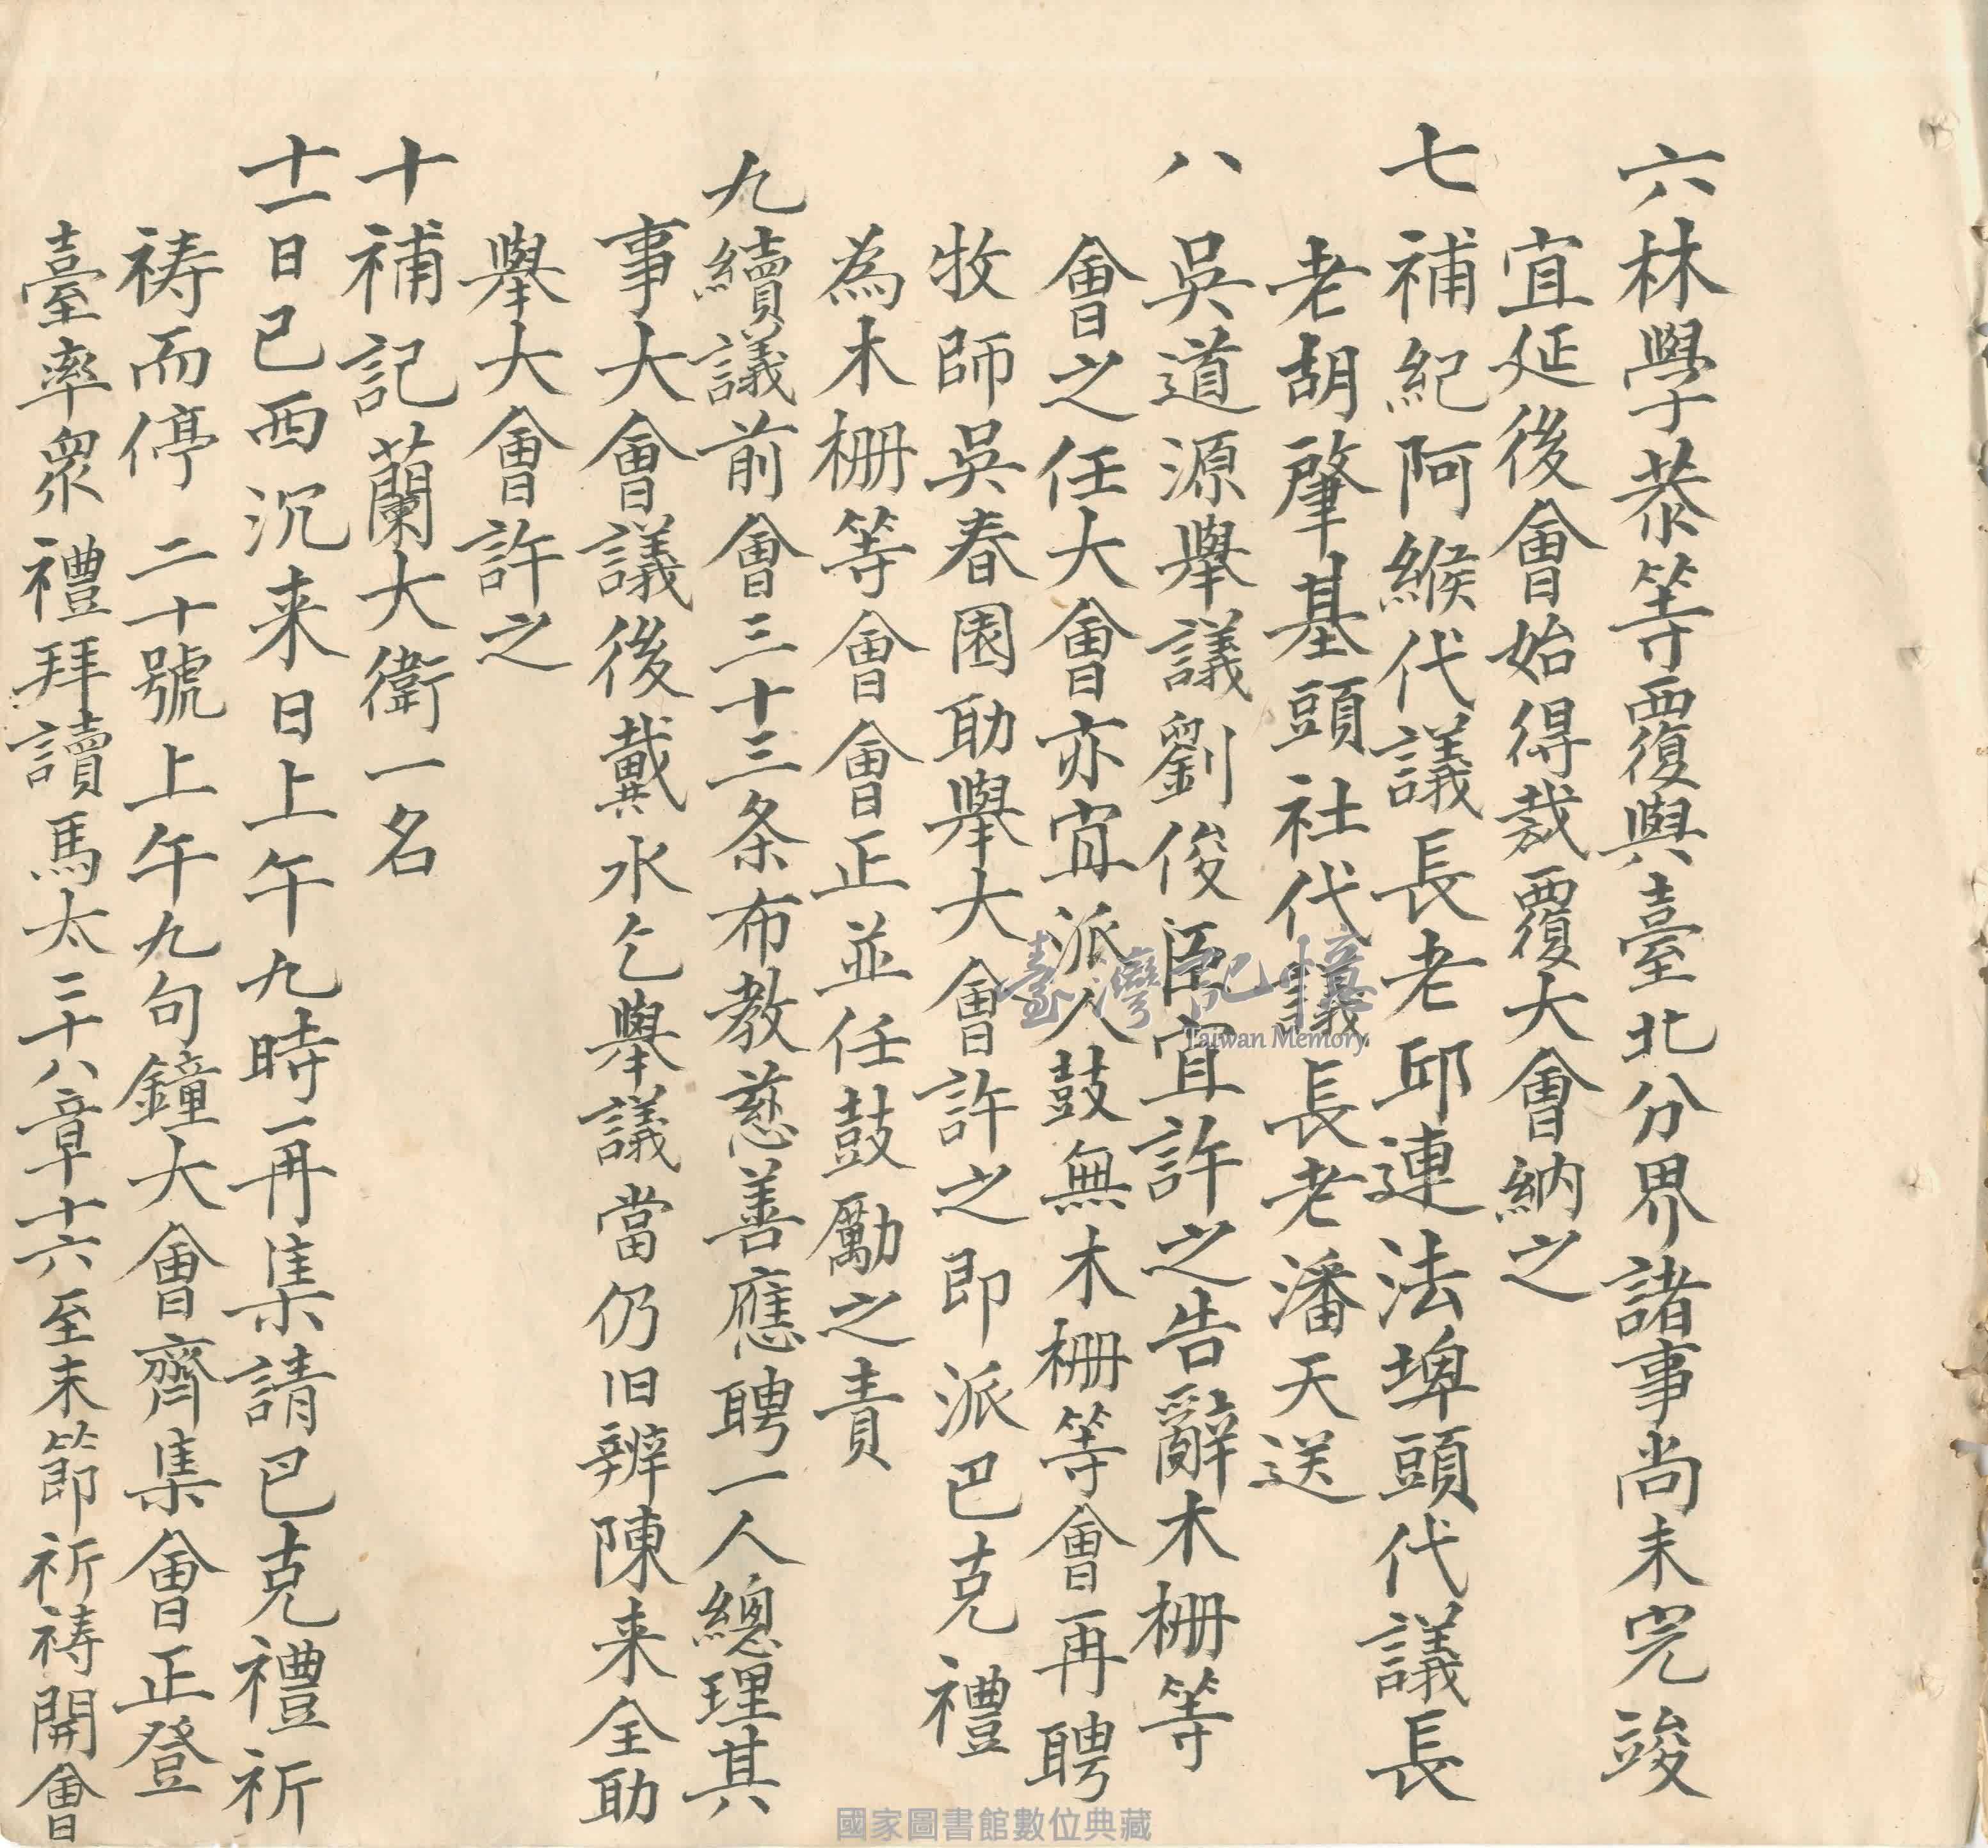 六林學恭等覆與臺北分界諸事尚未完竣
宜延後會始得裁覆大會納之
七補紀阿緱代議長老邱連法埤頭代議長
老胡肇基頭社代議長老潘天送
八吳道源舉議劉俊臣宜許之告辭木柵等
會之任大會亦宜派人鼓無木柵等會再聘
牧師吳春園助舉大會許之即派巴克禮
為木柵等會會正並任鼓勵之責
九續議前會三十三条布教慈善應聘一人總理其
事大會議後戴水乞舉議當仍旧辨陳来全助
舉大會許之
十補記蘭大衛一名
十一日已西沉来日上午九時再集請巴克禮祈
祷而停 二十號上午九句鐘大會齊集會正登
臺率眾禮拜讀馬太二十八章十六至末節祈祷開會
臺灣記憶
Taiwan Memory
國家圖書館數位典藏